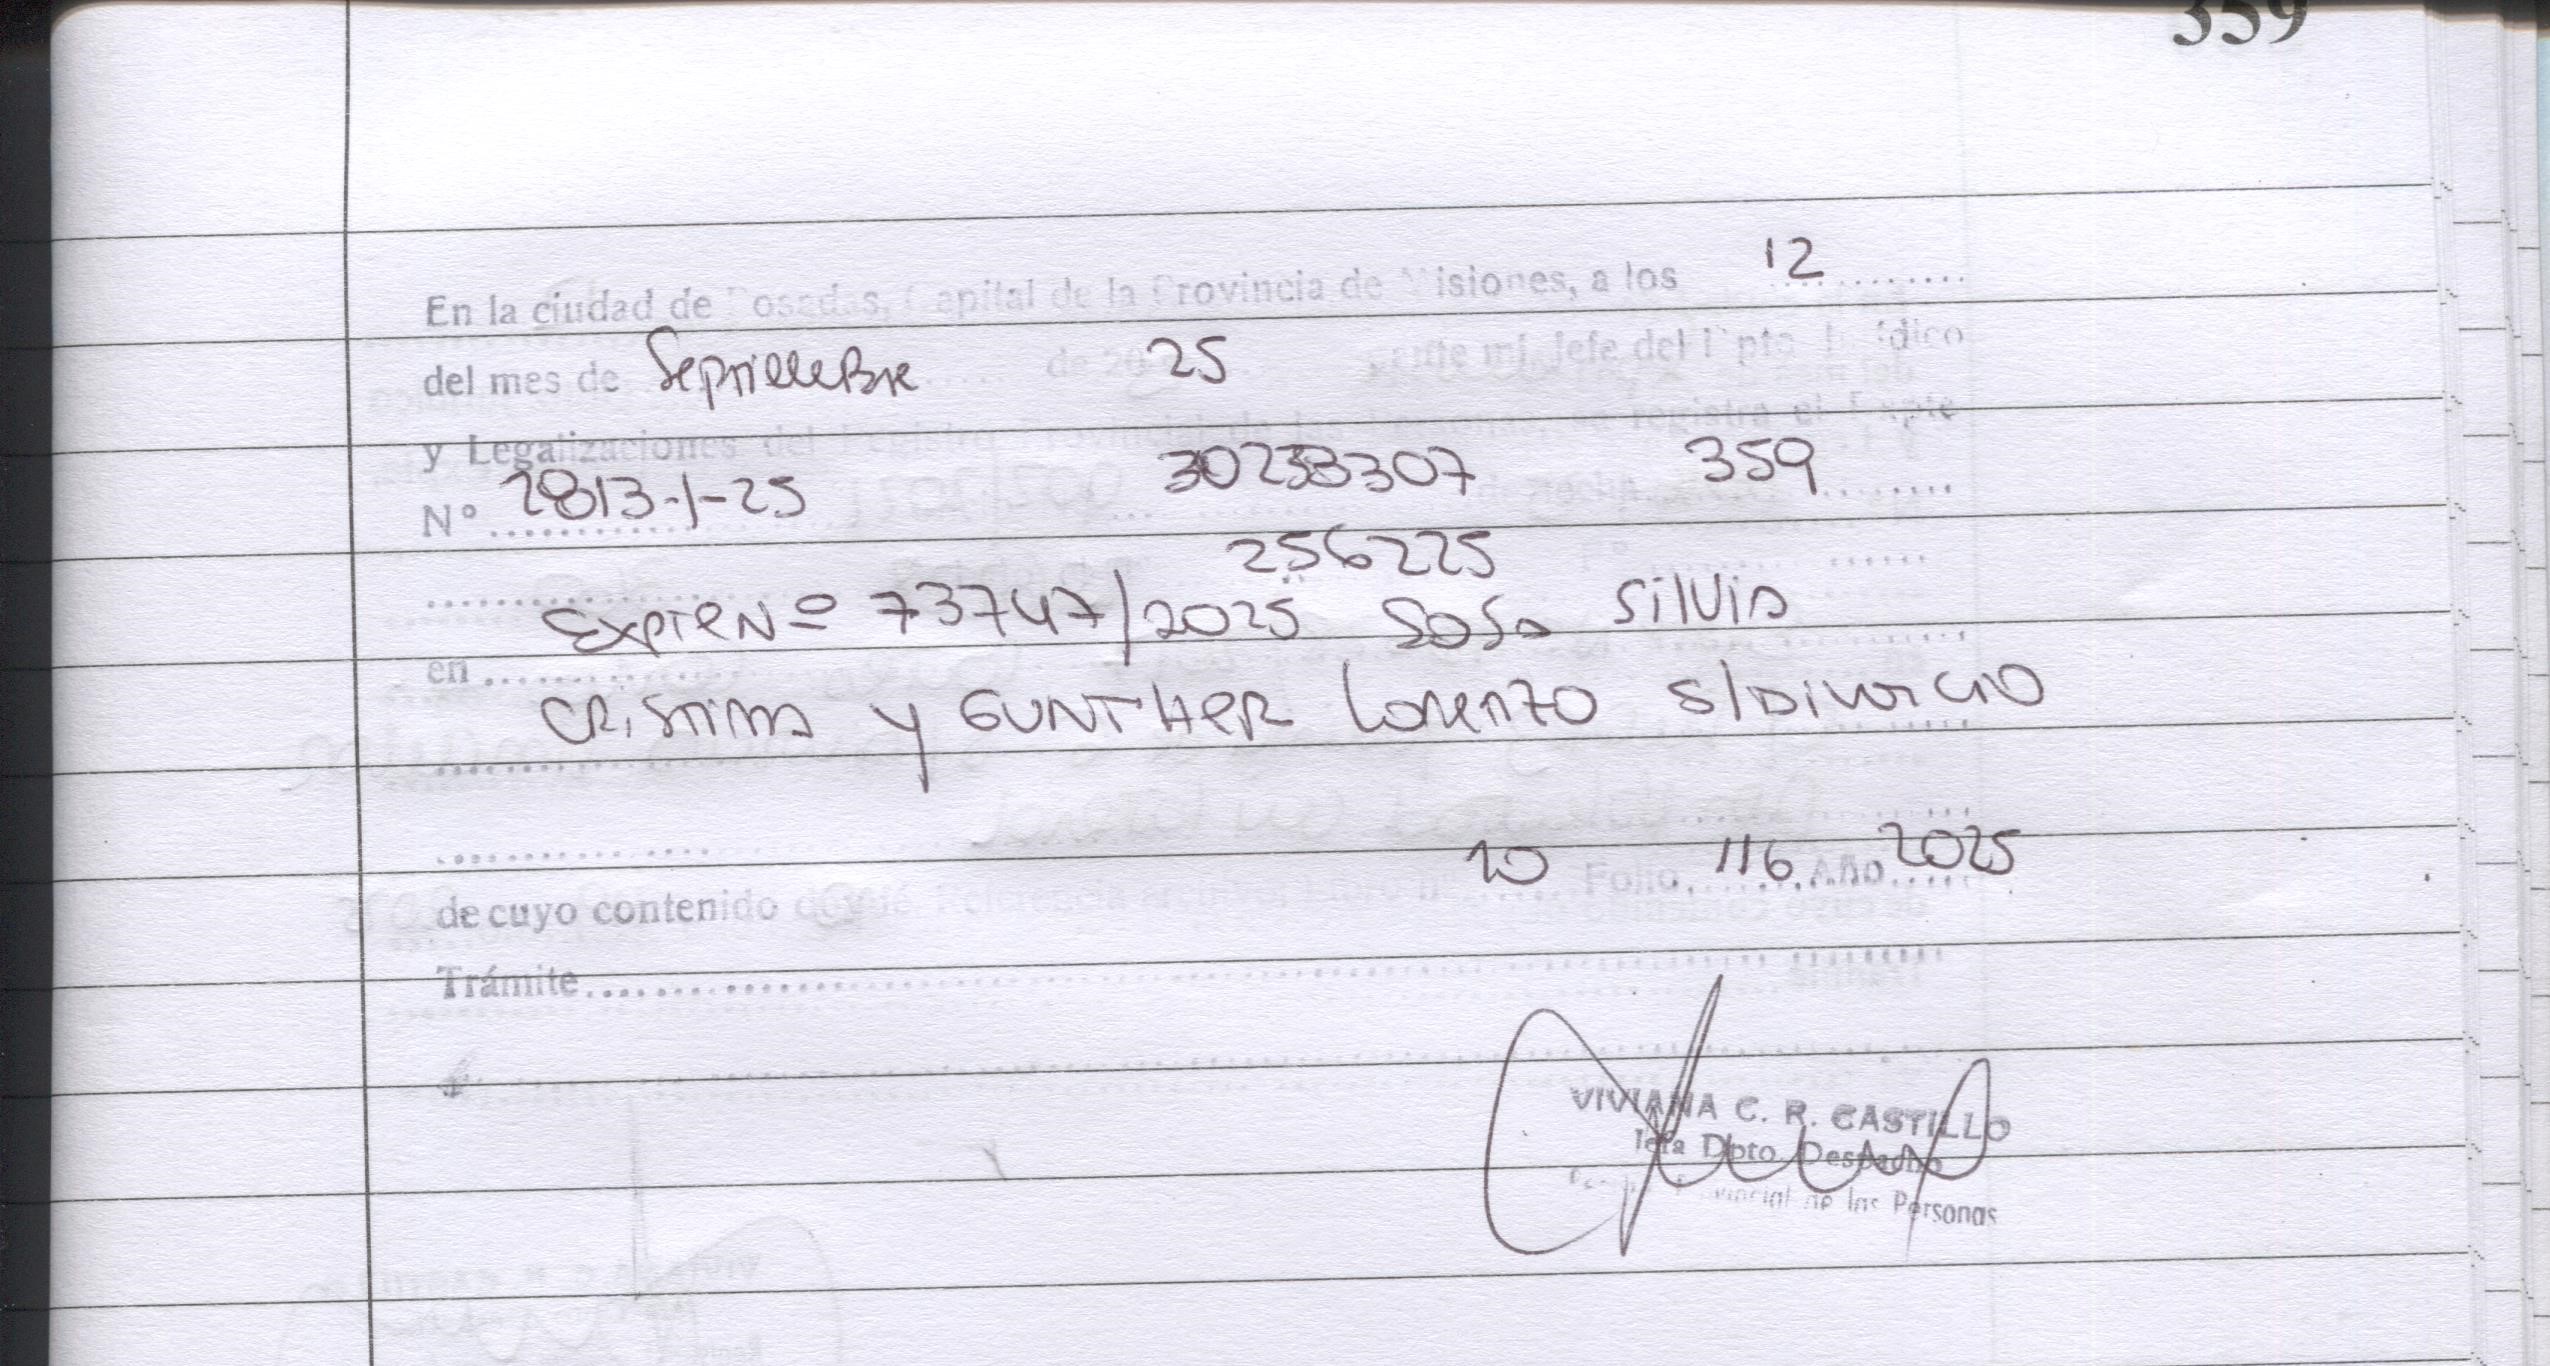 359
En la ciudad de Posadas, Capital de la Provincia de Misiones, a los 12
del mes de Septiembre de 20 25 ante mi, Jefe del Dpto. Jurídico
y Legalizaciones del Registro Provincial de las Personas, se registra el Expte
N° 2813-1-25 30238307 359
256225
Expte Nº 73747/2025 Sosa Silvia
en
Cristina y GUNTHER Lorenzo S/Divorcio
10 116 2025
de cuyo contenido doy fé. Referencia archivo: Libro n° Folio Año
Trámite
VIVIANA C. R. CASTILLO
Jefa Dpto. Despacho
Provincial de las Personas